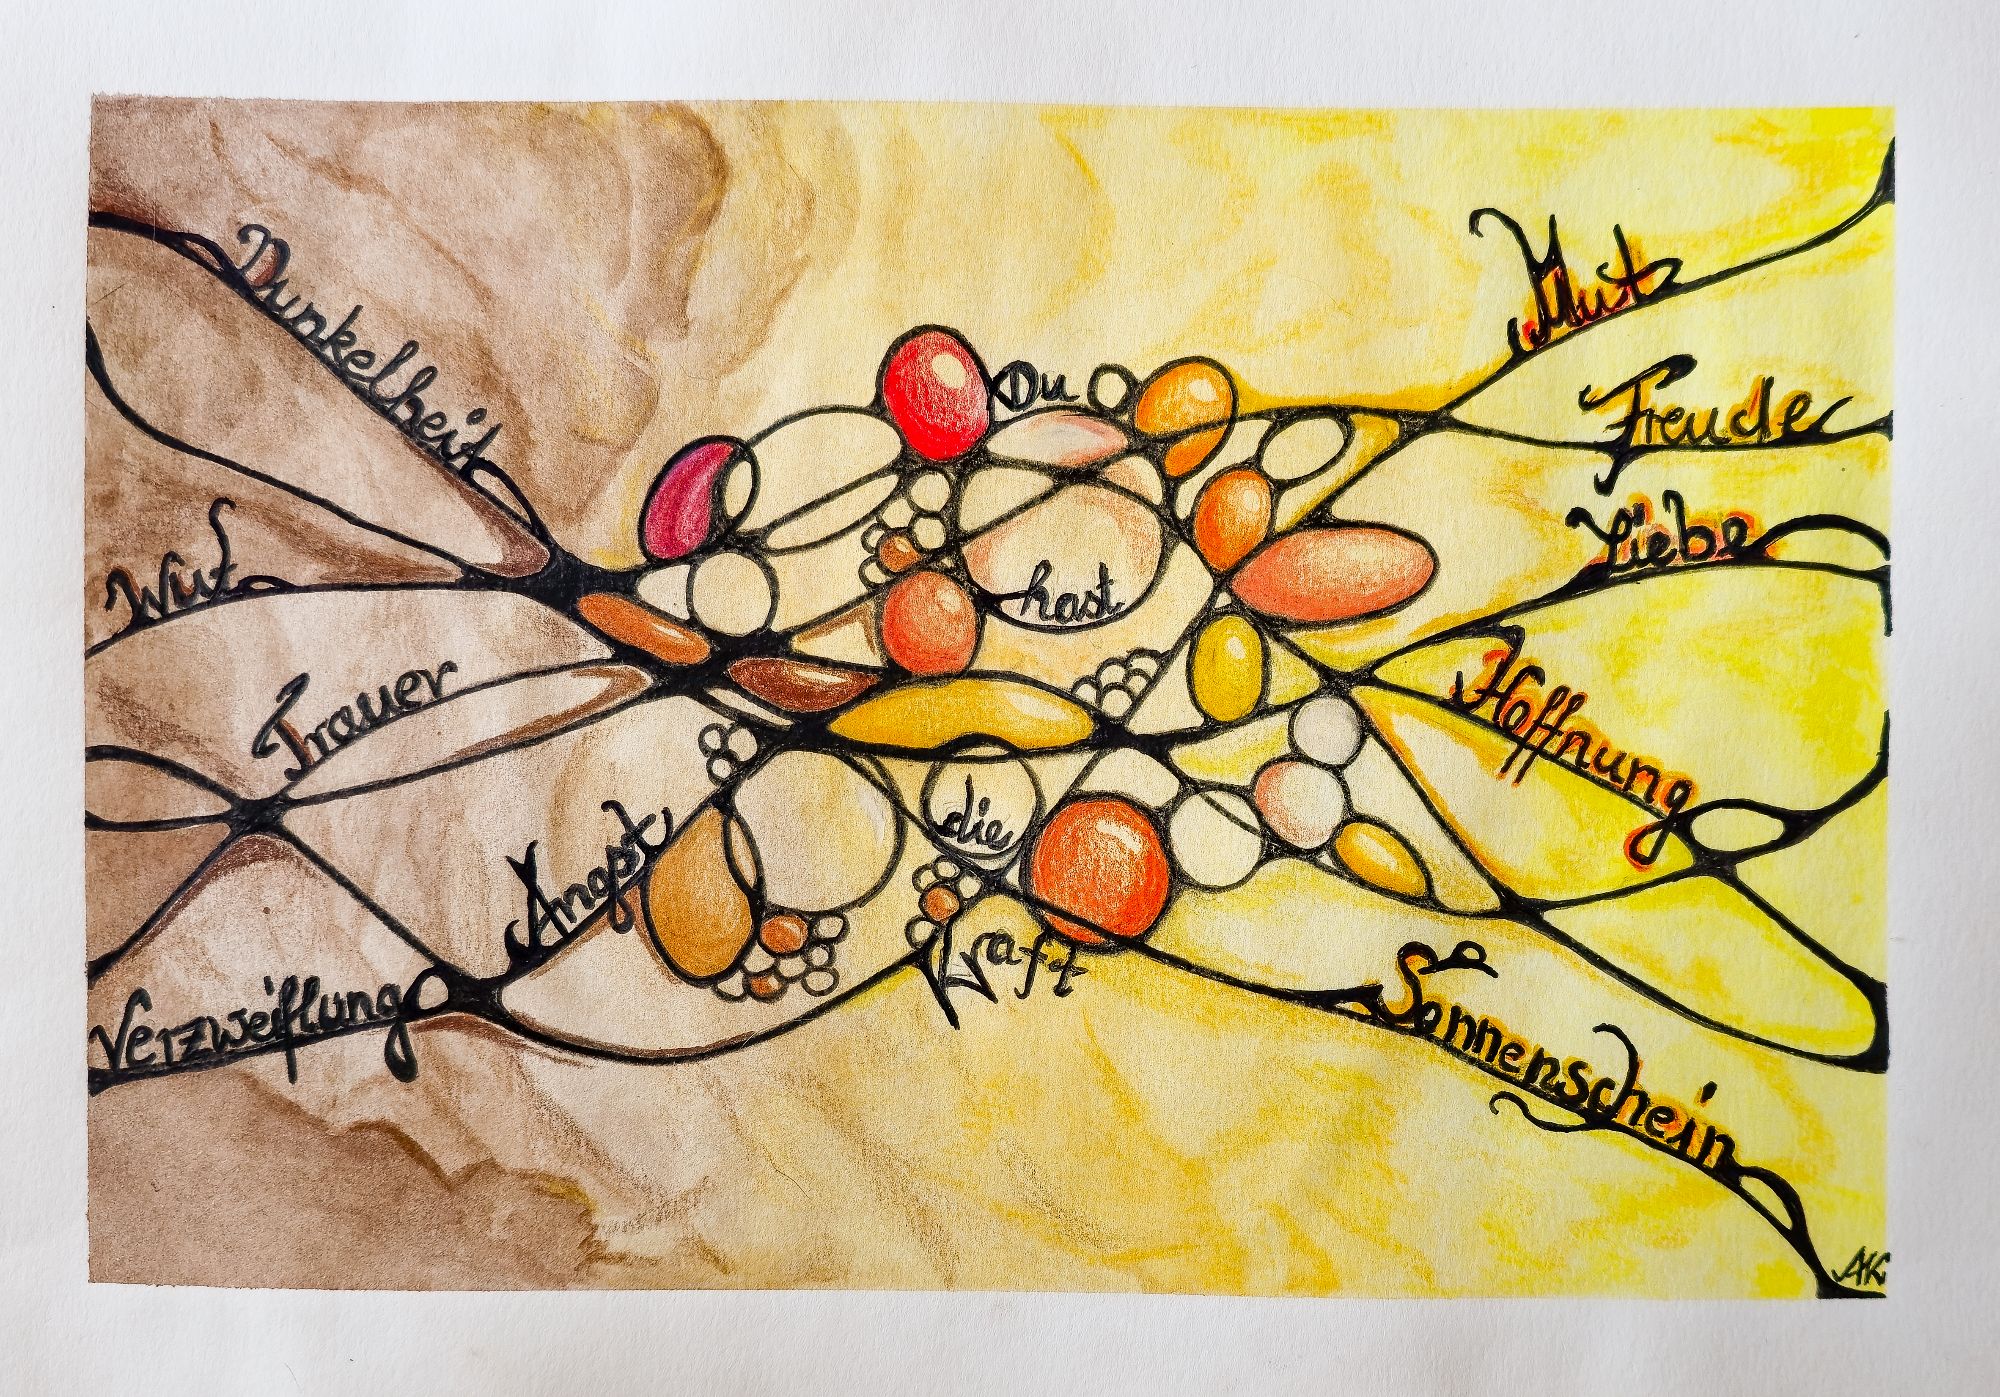 Dunkelheit
Wut
Trauer
Angst
Verzweiflung
Du
hast
die
Kraft
Mut
Freude
Liebe
Hoffnung
Sonnenschein
AK